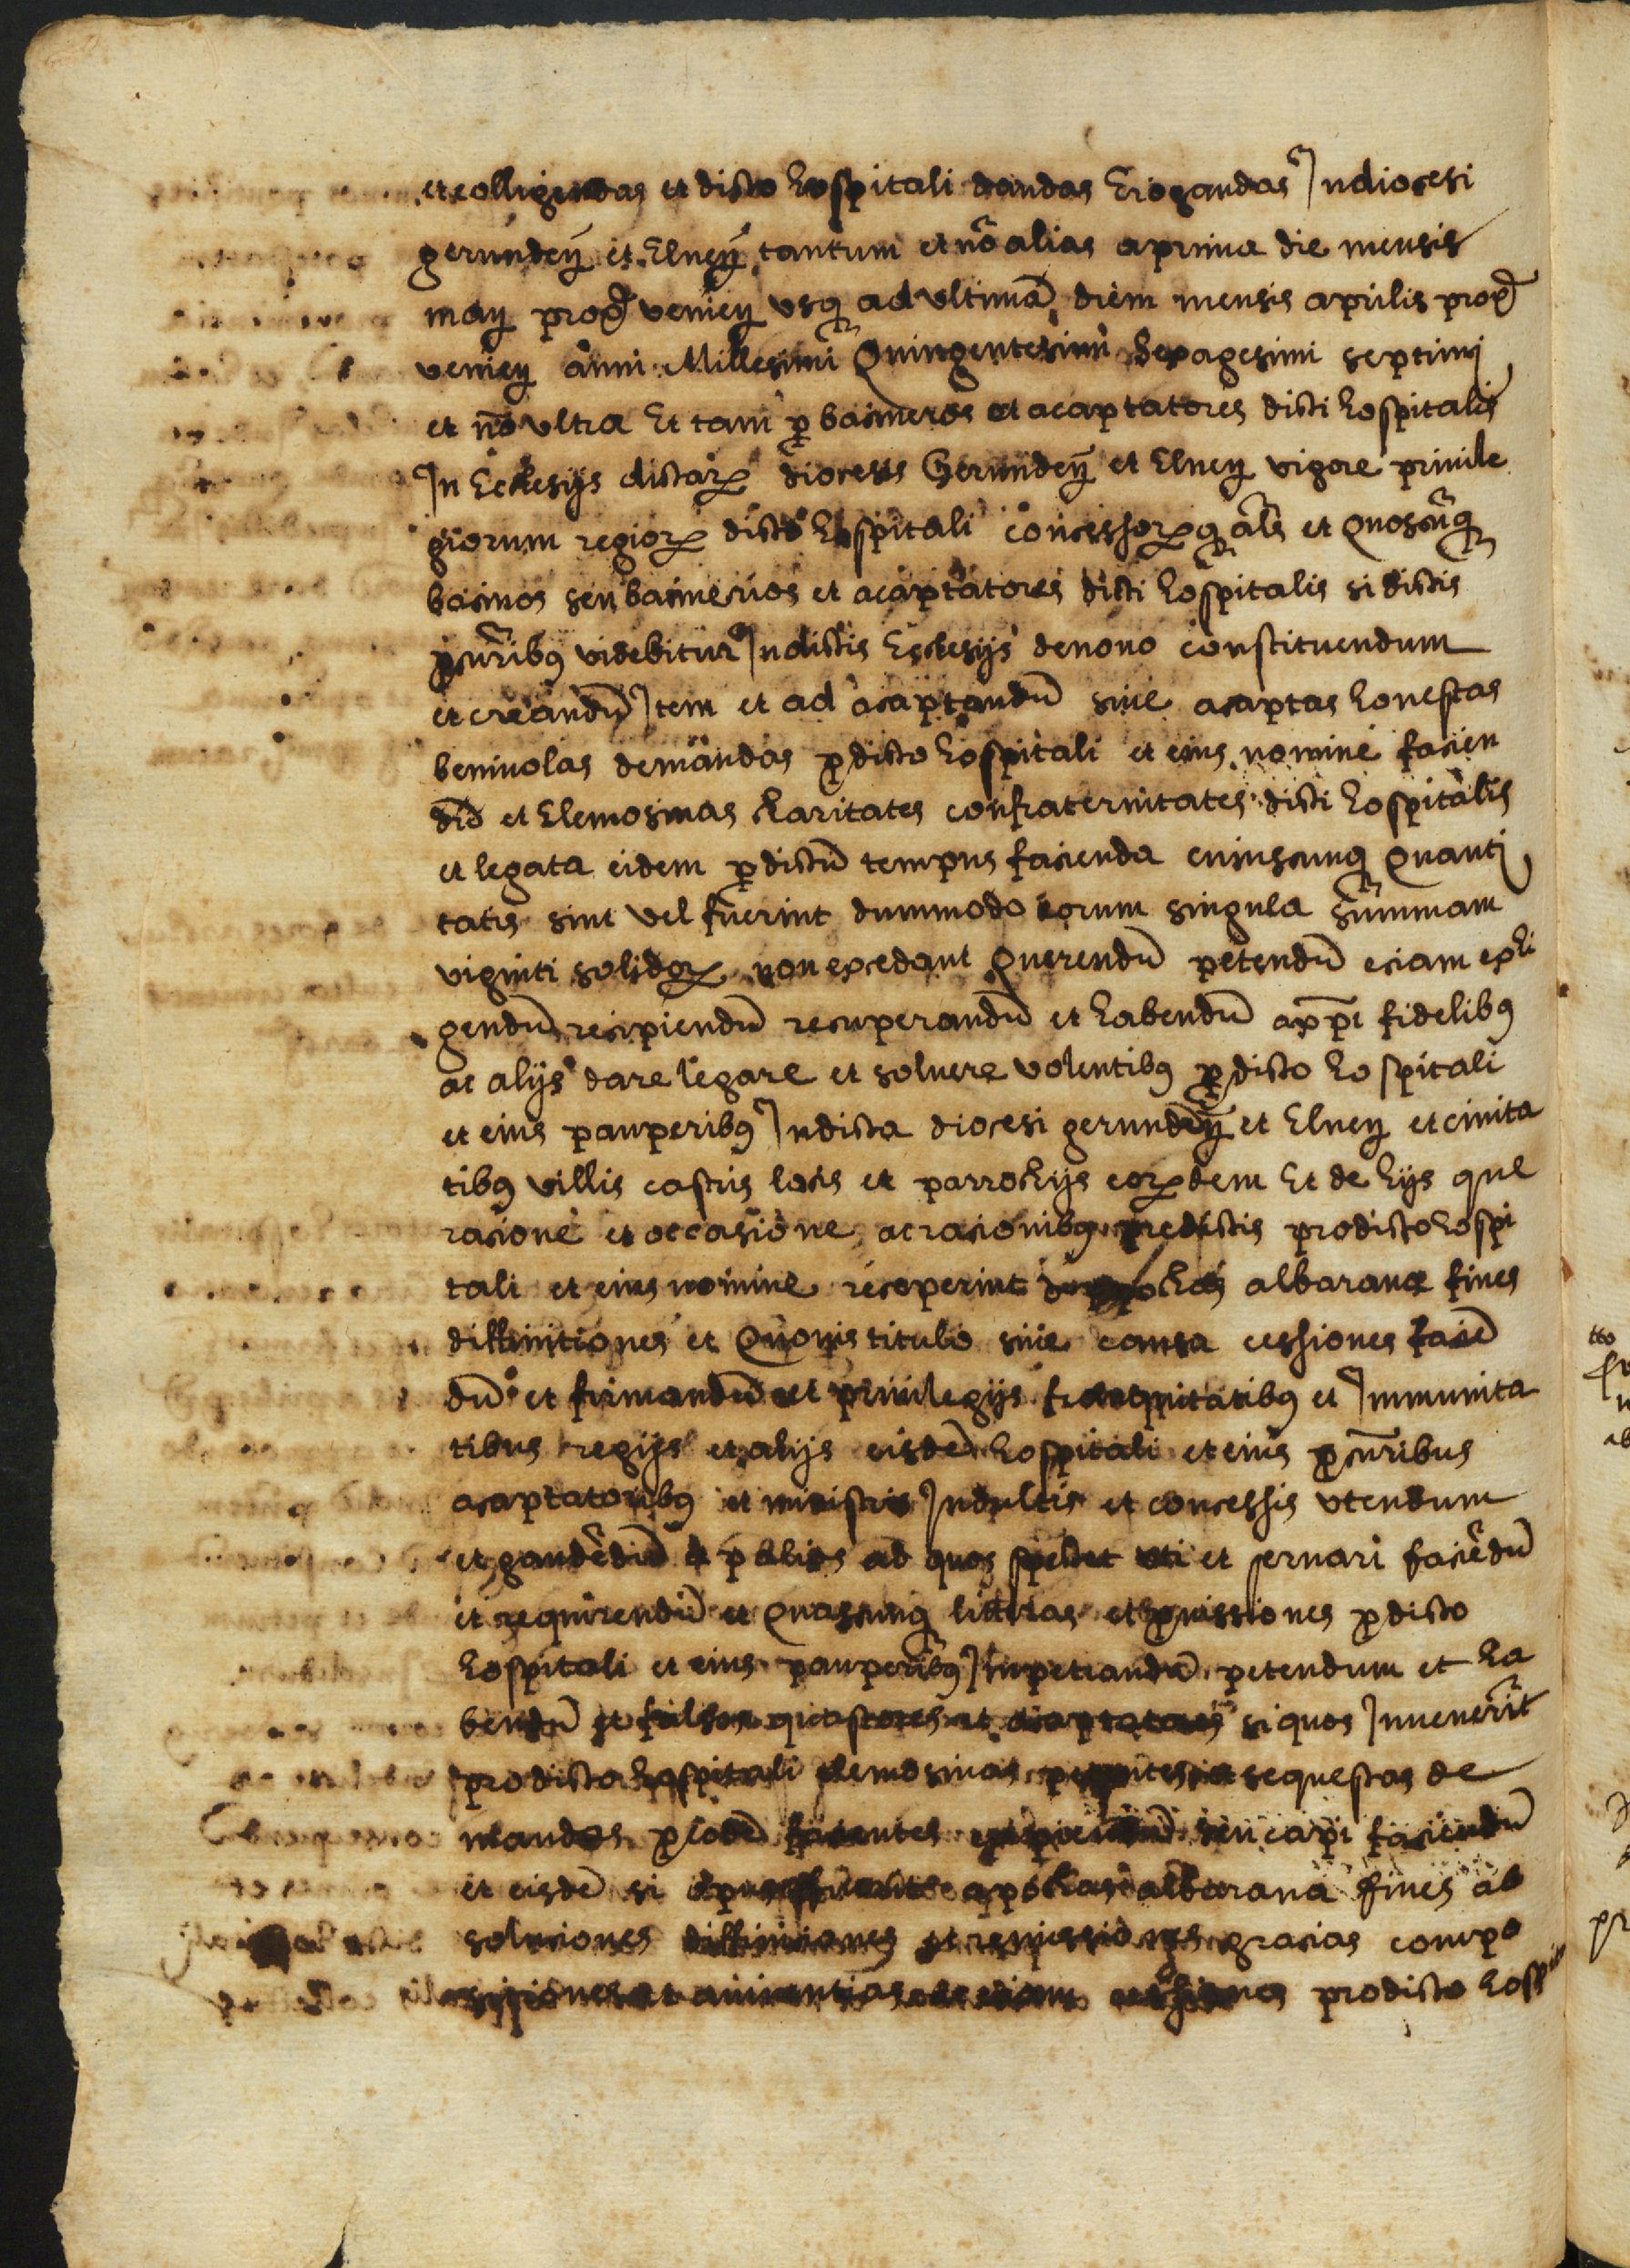 et colligendas et dicto hospitali dandas Erogandas In diocesi
gerundeñ et Elneñ tantum et nō alias a prima die mensis
may prox̄ venieñ vsq̄ ad vltimā diem mensis aprilis prox̄
venieñ anni Millesimi Quingentesimi Sexagesimi septimi
et nō vltra Et tam ꝑ bacineros et acaptatores dicti hospitalis
In Ecclesijs dictaꝝ diocesis Gerundeñ et Elneñ vigore priuile
giorum regioꝝ dicto hospitali concessoꝝ q̄ als̄ et quoscūq̄
bacinos seu bacinerios et acaptatores dicti hospitalis si dictis
ꝓcūribꝰ videbitur In dictis Ecclesijs de nouo constituendum
et creandū Item et ad acaptandū siue acaptas honestas
beniuolas demandas ꝓ dicto hospitali et eius nomine facien
dū et Elemosinas Charitates confraternitates dicti hospitalis
et legata eidem ꝑ dictū tempus facienda cuiuscunq̄ quanti
tatis sint vel fuerint dummodo eorum singula summam
viginti solidoꝝ non excedant querendū petendū eciam exhi
gendū recipiendū recuperandū et habendū a xp̄i fidelibꝰ
ac alijs dare legare et soluere volentibꝰ ꝓ dicto hospitali
et eius pauperibꝰ In dicta diocesi gerundeñ et Elneñ et ciuita
tibꝰ villis castris locis et parrochijs eoꝝdem Et de hijs que
racione et occasione ac racionibꝰ predictis pro dicto hospi
tali et eius nomine receperint apochas albarana fines
diffinitiones et quouis titulo siue causa cessiones facie
dū et firmandū et priuilegijs et Immunita
tibus regijs et alijs eisdē hospitali et eius ꝓcūribus
acaptatoribꝰ et ministris Indultis et concessis vtendum
et gaudēdū et ꝑ alios ad quos spectet vti et seruari faciēdū
et requirendū et quascunq̄ litteras et ꝓuissiones ꝓ dicto
hospitali et eius pauperibꝰ Impetrandū petendum et ha
bendū et falsos questores et acaptatores si quos Inuenerīt
pro dicto hospitali elemosinas sequestas de
mandas facientes seu capi faciendū
et eisdē si apochas albarana fines ab
soluciones diffiniciones et remissiones gracias compo
siciones et eciam cessiones pro dicto hospi